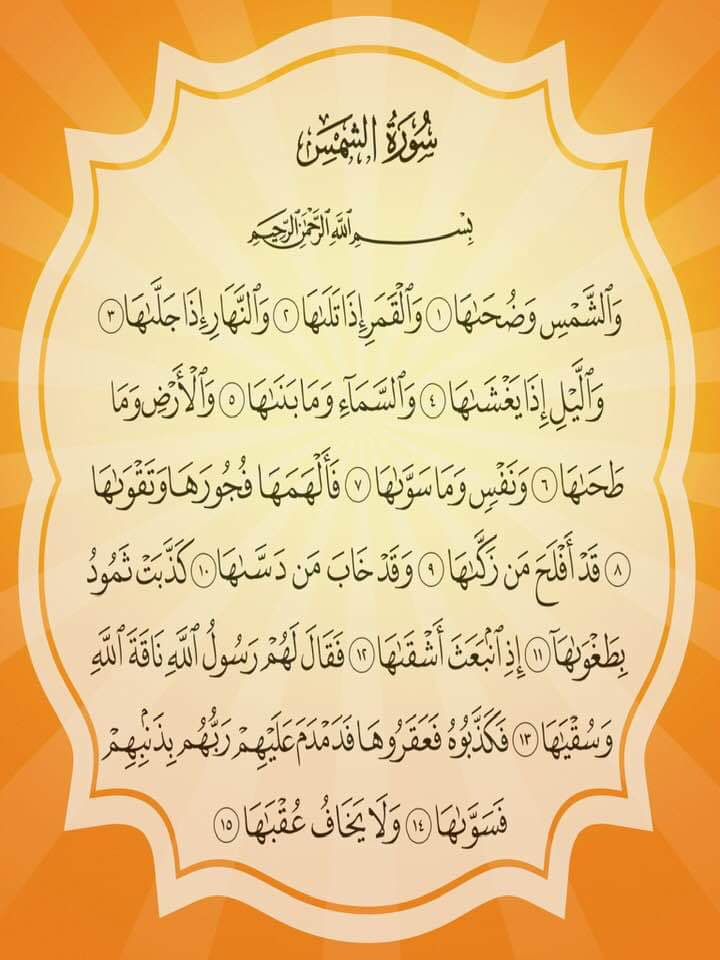 سُورَةُ الشَّمْسِ
بِسْمِ ٱللَّهِ ٱلرَّحْمَٰنِ ٱلرَّحِيمِ
وَٱلشَّمْسِ وَضُحَىٰهَا ١ وَٱلْقَمَرِ إِذَا تَلَىٰهَا ٢ وَٱلنَّهَارِ إِذَا جَلَّىٰهَا ٣
وَٱلَّيْلِ إِذَا يَغْشَىٰهَا ٤ وَٱلسَّمَآءِ وَمَا بَنَىٰهَا ٥ وَٱلْأَرْضِ وَمَا
طَحَىٰهَا ٦ وَنَفْسٍ وَمَا سَوَّىٰهَا ٧ فَأَلْهَمَهَا فُجُورَهَا وَتَقْوَىٰهَا
٨ قَدْ أَفْلَحَ مَن زَكَّىٰهَا ٩ وَقَدْ خَابَ مَن دَسَّىٰهَا ١٠ كَذَّبَتْ ثَمُودُ
بِطَغْوَىٰهَآ ١١ إِذِ ٱنۢبَعَثَ أَشْقَىٰهَا ١٢ فَقَالَ لَهُمْ رَسُولُ ٱللَّهِ نَاقَةَ ٱللَّهِ
وَسُقْيَٰهَا ١٣ فَكَذَّبُوهُ فَعَقَرُوهَا فَدَمْدَمَ عَلَيْهِمْ رَبُّهُم بِذَنۢبِهِمْ
فَسَوَّىٰهَا ١٤ وَلَا يَخَافُ عُقْبَٰهَا ١٥